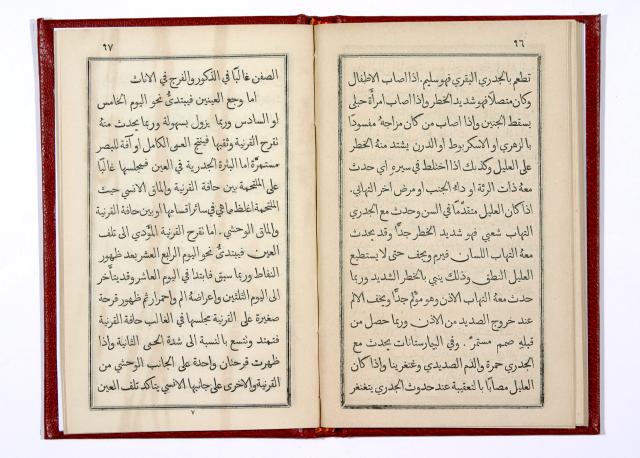 ٩٦
تطعم بالجدري البقري فهو سليم. اذا اصاب الاطفال
وكان متصلاً فهو شديد الخطر واذا اصاب امرأة حبلى
يسقط الجنين واذا اصاب من كان مزاجه مفسودًا
بالزهري او الاسكربوط او الدرن يشتد منه الخطر
على العليل وكذلك اذا اختلط في سيره اي حدث
معه ذات الرئة او داء الجنب او مرض اخر التهابي.
اذا كان العليل متقدمًا في السن وحدث مع الجدري
التهاب شعبي فهو شديد الخطر جدًّا وقد يحدث
معه التهاب اللسان فيرم ويجف حتى لا يستطيع
العليل النطق وذلك ينبي بالخطر الشديد وربما
حدث معه التهاب الاذن وهو مؤلم جدًّا ويخف الالم
عند خروج الصديد من الاذن وربما حصل من
قبله صمم مستمر. وفي البيمارستانات يحدث مع
الجدري حمرة والدم الصديدي وغنغرينا واذا كان
العليل مصابًا بالتعقيبة عند حدوث الجدري يتغنغر
٩٧
الصفن غالبًا في الذكور والفرج في الاناث
اما وجع العينين فيبتدئ نحو اليوم الخامس
او السادس وربما يزول بسهولة وربما يحدث منه
تقرح القرنية وثقبها فينتج العمى الكامل او آفة للبصر
مستمرة اما البثرة الجدرية في العين فمجلسها غالبًا
على الملتحمة بين حافة القرنية والماق الانسي حيث
الملتحمة اغلظ مما هي في سائر اقسامها او بين حافة القرنية
والماق الوحشي. اما تقرح القرنية المؤدي الى تلف
العين فيبتدئ نحو اليوم الرابع العشر بعد ظهور
النفاط وربما سبق فابتدا في اليوم العاشر وقد يتأخر
الى اليوم الثلثين واعراضه الم واحمرار ثم ظهور قرحة
صغيرة على القرنية مجلسها في الغالب حافة القرنية
فتمتد وتتسع بالنسبة الى شدة الحمى الثانية واذا
ظهرت قرحتان واحدة على الجانب الوحشي من
القرنية والاخرى على جانبها الانسي يتاكد تلف العين
٧